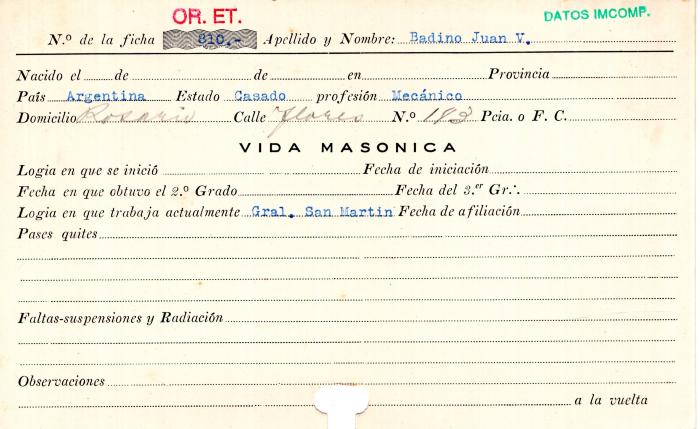 OR. ET.
DATOS IMCOMP.
N.º de la ficha 810.- Apellido y Nombre: Badino Juan V.
Nacido el de de en Provincia
País Argentina Estado Casado profesión Mecánico
Domicilio Rosario Calle Flores N.º 193 Pcia. o F. C.
VIDA MASONICA
Logia en que se inició Fecha de iniciación
Fecha en que obtuvo el 2.º Grado Fecha del 3.er Gr∴
Logia en que trabaja actualmente Gral. San Martin Fecha de afiliación
Pases quites
Faltas-suspensiones y Radiación
Observaciones
a la vuelta